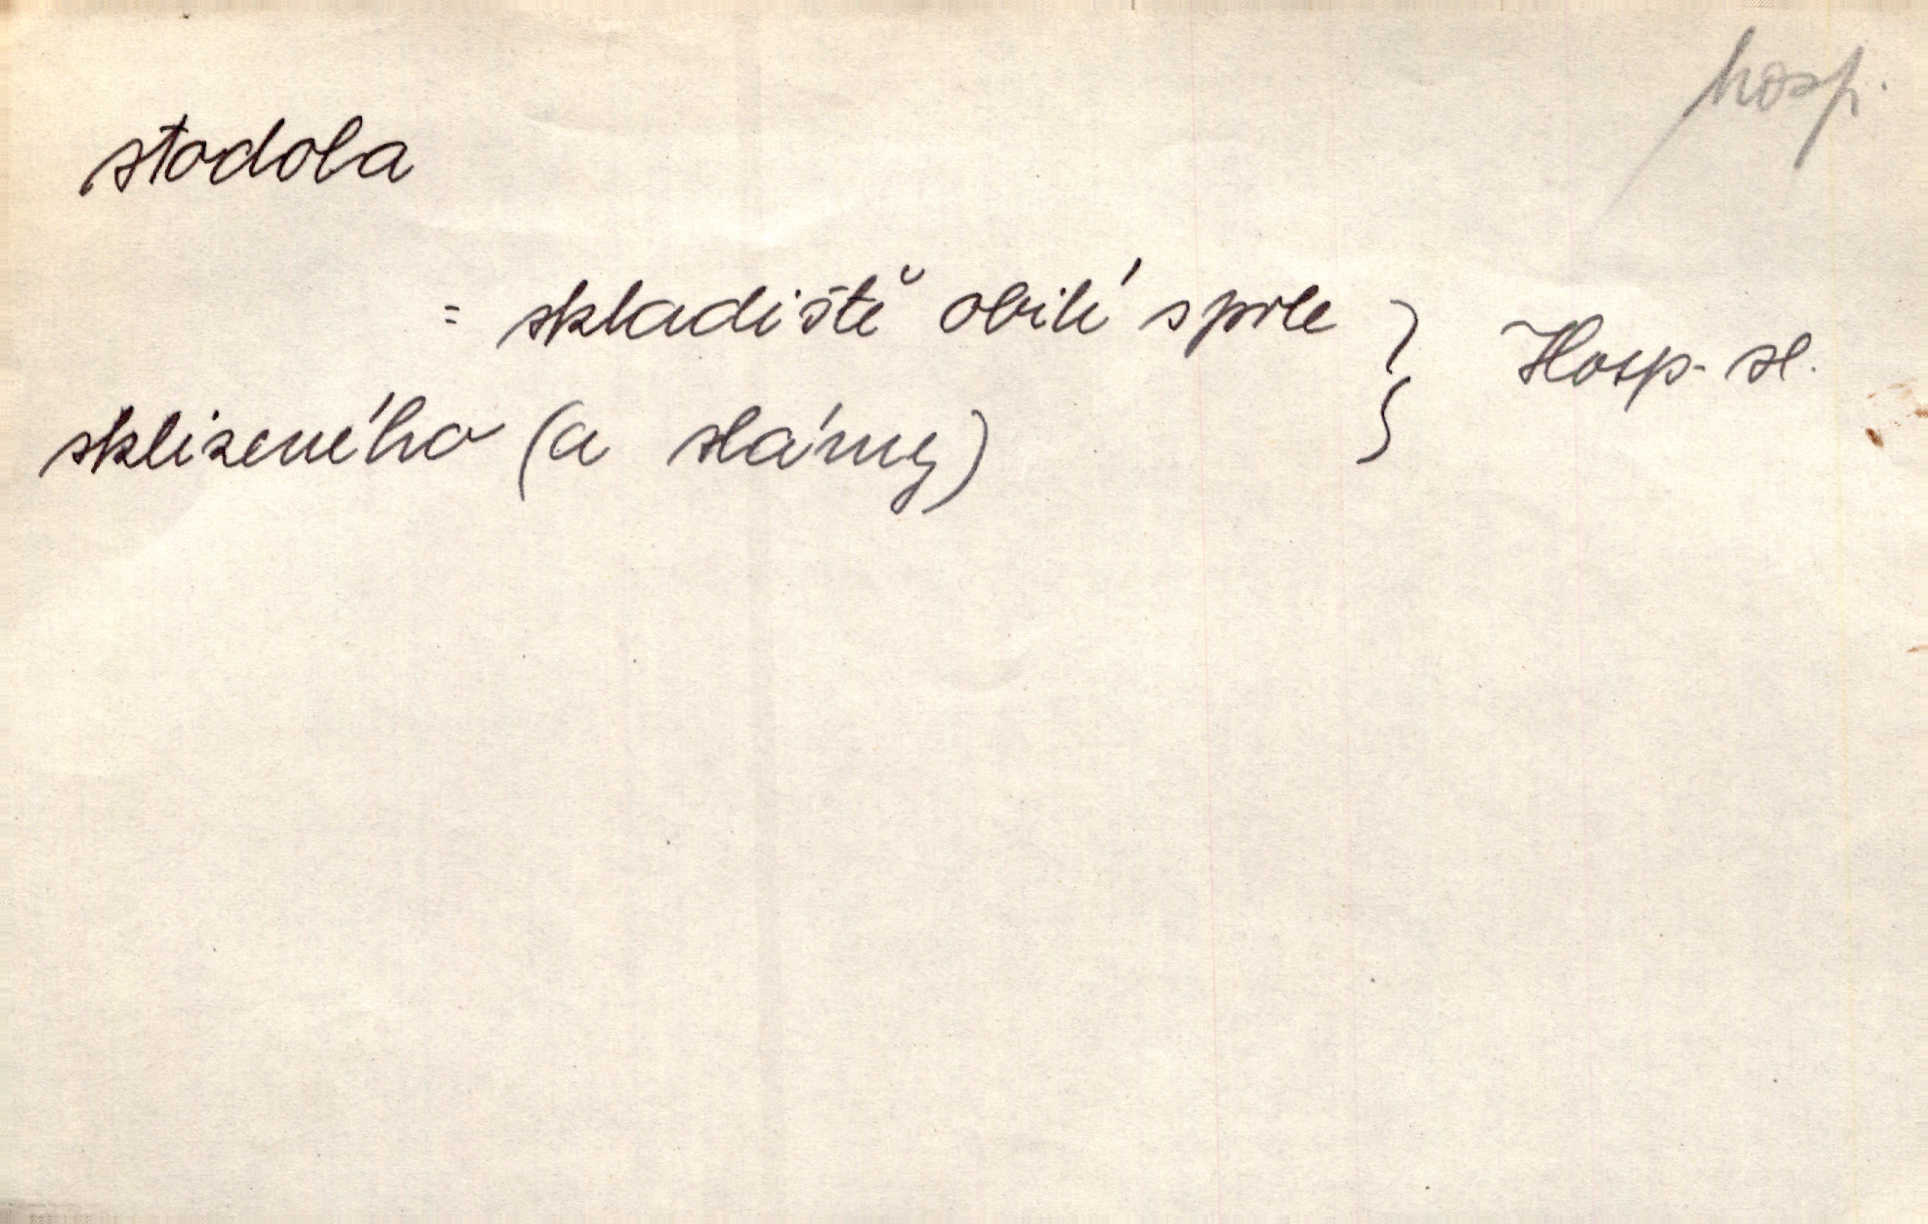 hosp.
stodola
= skladiště obilí s pole } Hosp. sl.
sklizeného (a slámy)